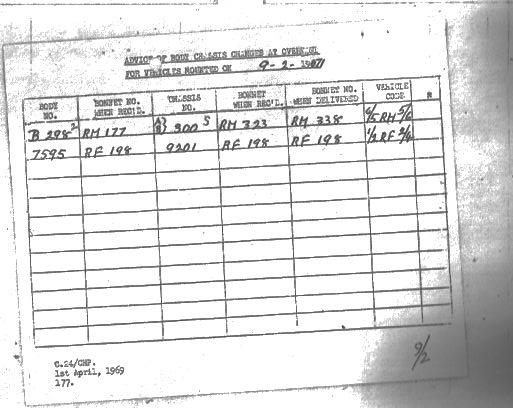 ADVICE OF BODY CHASSIS CHANGES AT OVERHAUL
FOR VEHICLES MOUNTED ON 9-2-1971
BODY NO. BONNET NO. WHEN REC'D. CHASSIS NO. BONNET WHEN REC'D. BONNET NO. WHEN DELIVERED VEHICLE CODE
B 298² RM 177 A) B) 200 S RM 323 RM 338 6/5 RM 5/6
7595 RF 198 9201 RF 198 RF 198 1/2 RF
C.24/CHP.
1st April, 1969
177.
9/2